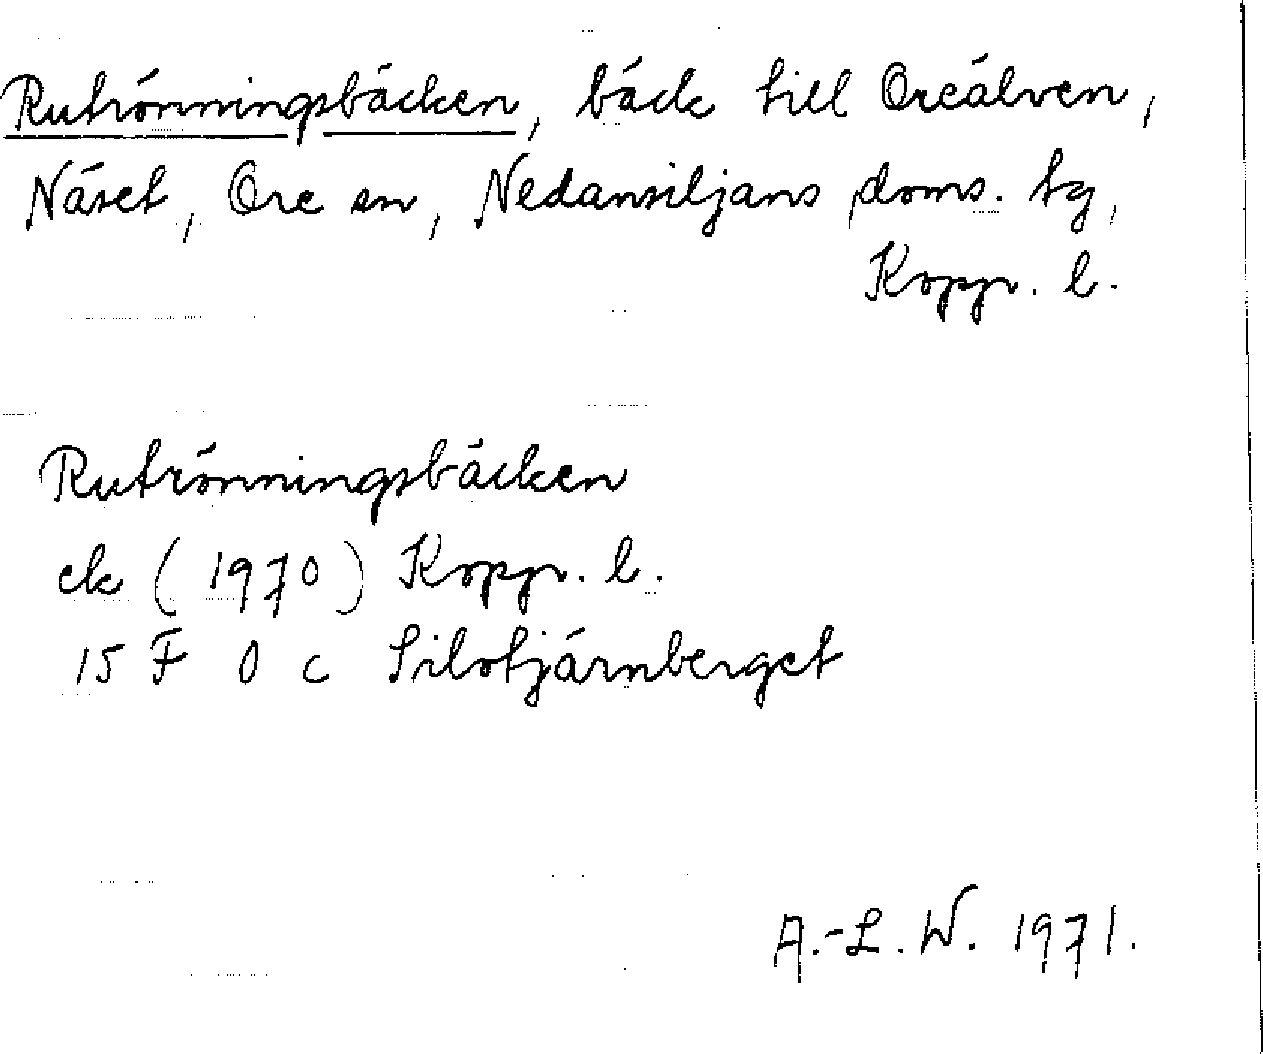 Rutrönningsbäcken, bäck till Oreälven,
Näset, Ore sn, Nedansiljans doms. tg,
Kopp. l.
Rutrönningsbäcken
ek (1970) Kopp. l.
15 F 0 c Silotjärnberget
A.-L. W. 1971.